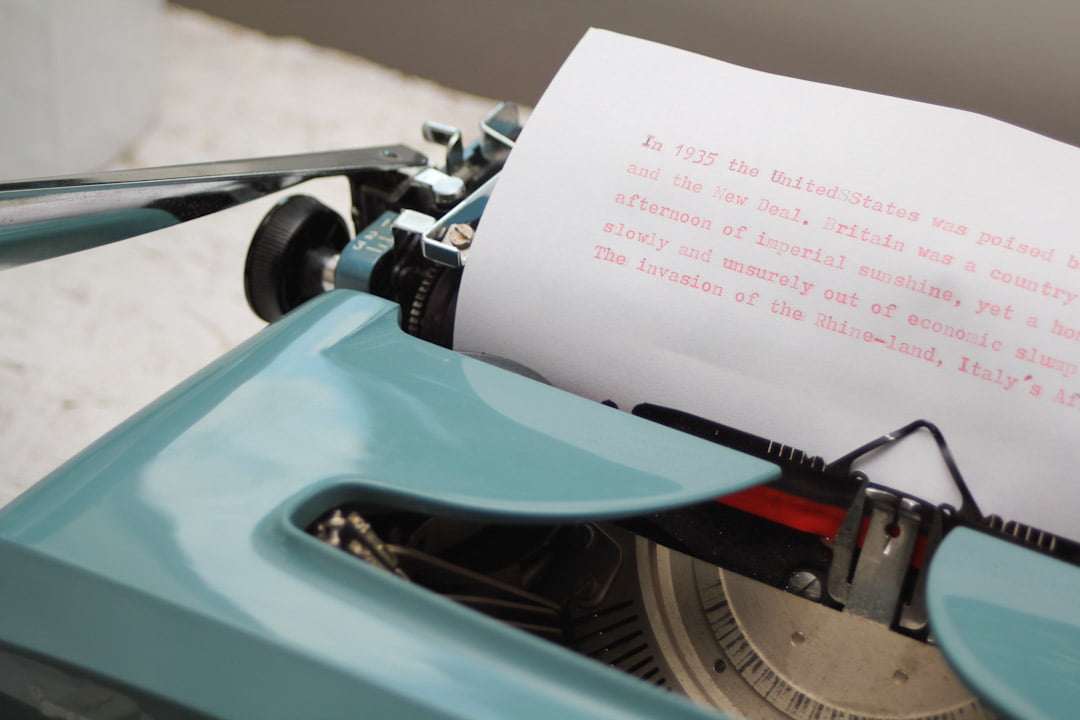 In 1935 the UnitedSStates was poised b
and the New Deal. Britain was a country
afternoon of imperial sunshine, yet a ho
slowly and unsurely out of economic slump
The invasion of the Rhine-land, Italy's Af